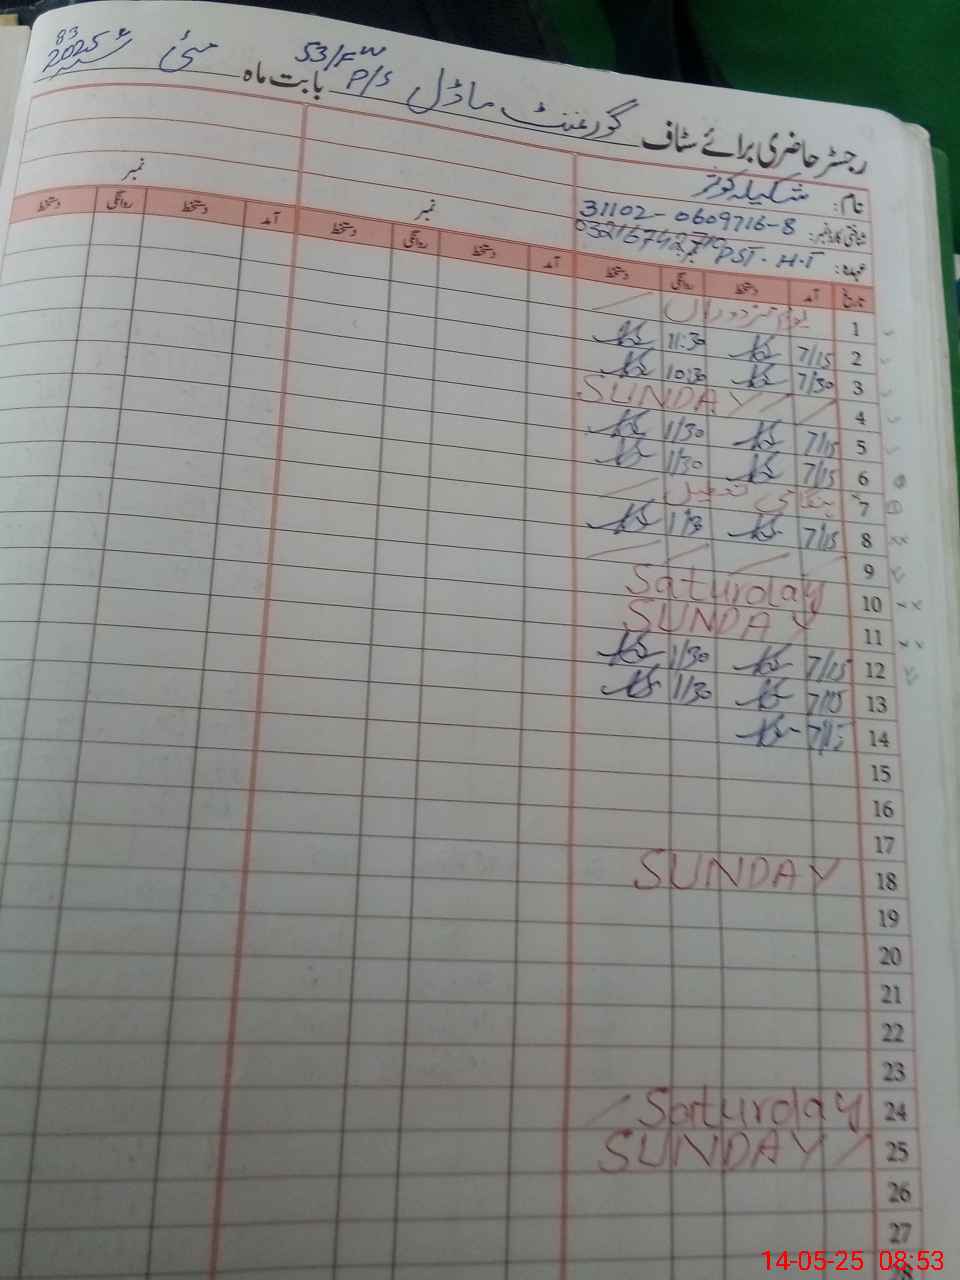 83
رجسٹر حاضری برائے سٹاف گورنمنٹ ماڈل P/S 53/FW بابت ماہ مئی 2025
نام: شکیلہ کوثر
شناختی کارڈ نمبر: 31102-0609716-8
عہدہ: PST. H.T
نمبر نمبر
تاریخ آمد دستخط روانگی دستخط آمد دستخط روانگی دستخط دستخط روانگی دستخط
1 یوم مزدوراں
2 7/15 11:30
3 7/30 10:30
4 SUNDAY
5 7/15 1/30
6 7/15 1/30
7 ہنگامی تعطیل
8 7/15 1/30
9
10 Saturday
11 SUNDAY
12 7/15 1/30
13 7/15 1/30
14 7/15
15
16
17
18 SUNDAY
19
20
21
22
23
24 Saturday
25 SUNDAY
26
27
14-05-25 08:53